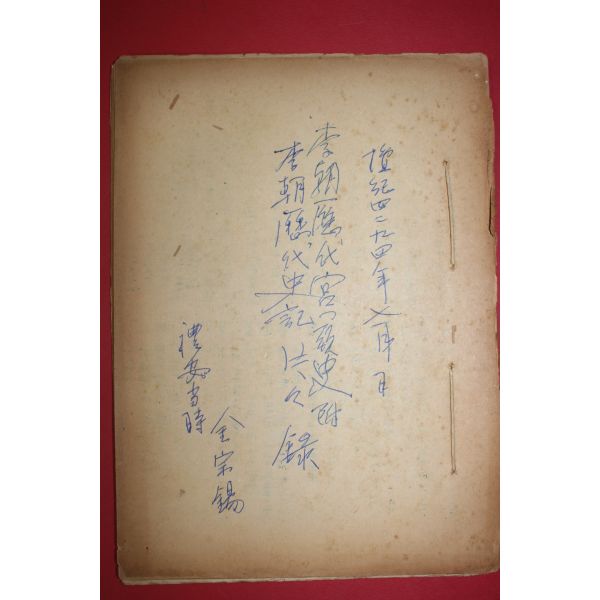 檀紀四二九四年七月 日
李朝歷代宮 史附
李朝歷代史記 片々錄
禮安当時
金宗錫